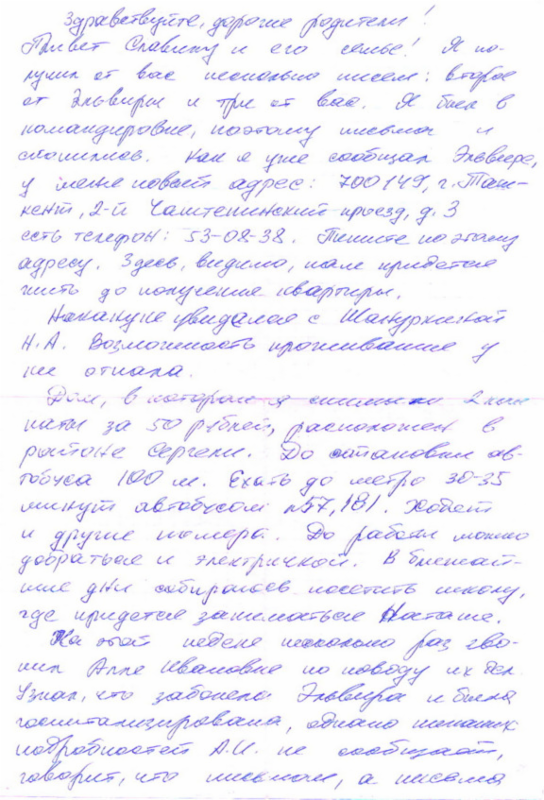 Здравствуйте, дорогие родители!
Привет Славику и его семье! Я по-
лучил от вас несколько писем: второе
от Эльвиры и три от вас. Я был в
командировке, поэтому письма и
скопились. Как я уже сообщал Эльвире,
у меня новый адрес: 700149, г. Таш-
кент, 2-й Чаштепинский проезд, д. 3
есть телефон: 53-08-38. Пишите по этому
адресу. Здесь, видимо, нам придется
жить до получения квартиры.
Накануне увиделся с
Н.А. Возможность проживания у
нее отпала.
Дом, в котором я снимаю 2 ком
наты за 50 рублей, расположен в
районе Сергели. До остановки ав-
тобуса 100 м. Ехать до метро 30-35
минут автобусом №57, 181. Ходят
и другие номера. До работы можно
добраться и электричкой. В ближай-
шие дни собираюсь посетить школу,
где придется заниматься Наташе.
На этой неделе несколько раз зво-
нил Алле Ивановне по поводу их дел
Узнал, что заболела Эльвира и была
госпитализирована, однако никаких
подробностей А.И. не сообщает,
говорит, что письмом, а письма